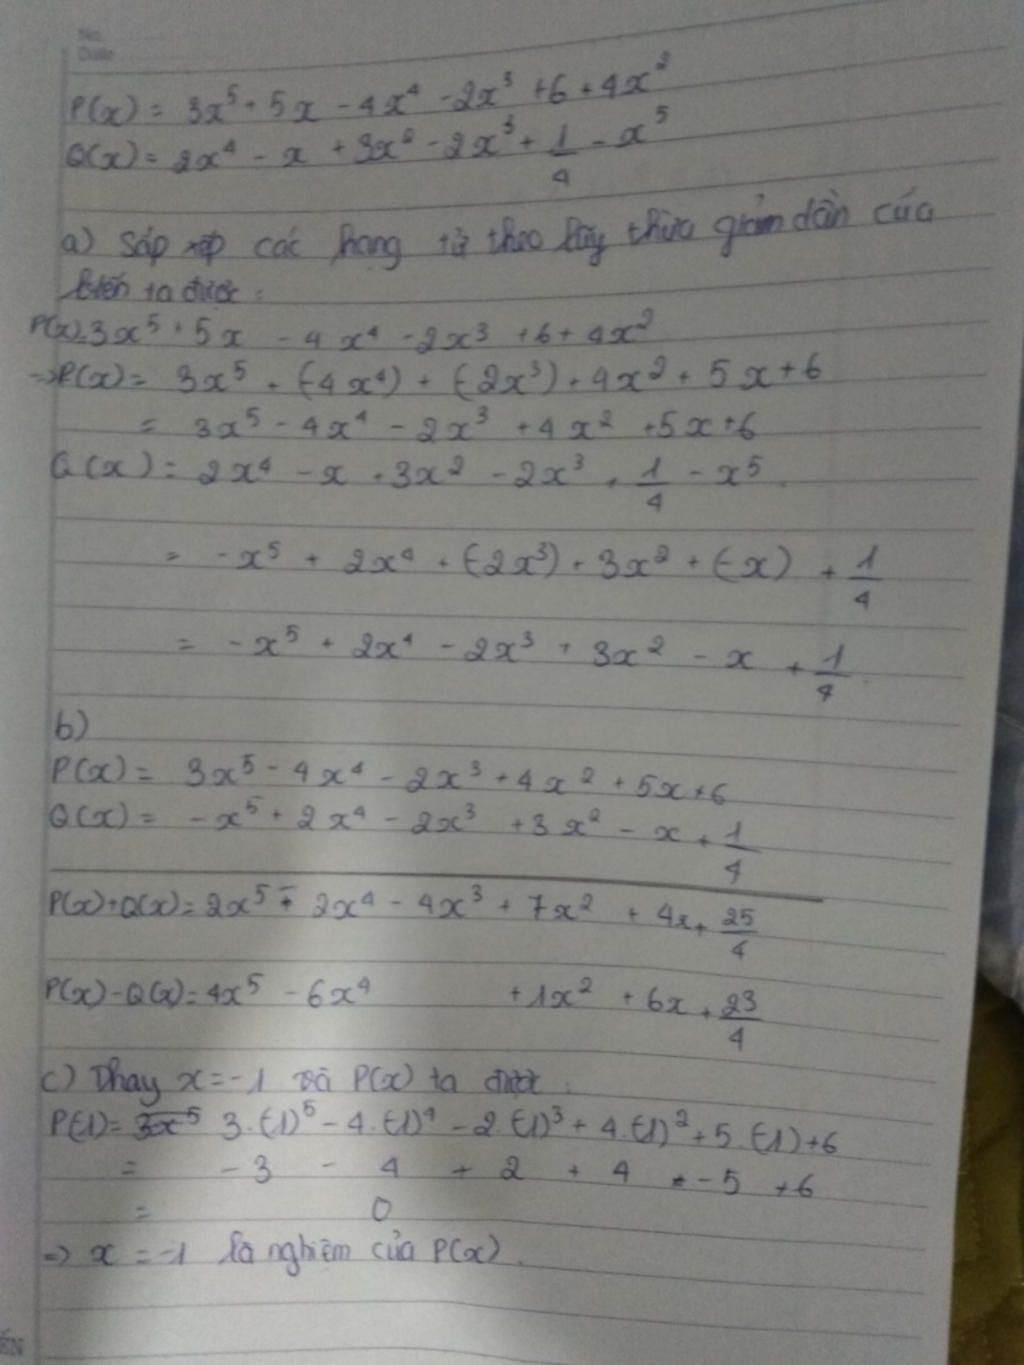 No.
Date
P(x) = 3x⁵ + 5x - 4x⁴ - 2x³ + 6 + 4x²
Q(x) = 2x⁴ - x + 3x² - 2x³ + 1/4 - x⁵
a) Sắp xếp các hạng tử theo lũy thừa giảm dần của
biến ta được :
P(x) = 3x⁵ + 5x - 4x⁴ - 2x³ + 6 + 4x²
=> P(x) = 3x⁵ + (-4x⁴) + (-2x³) + 4x² + 5x + 6
= 3x⁵ - 4x⁴ - 2x³ + 4x² + 5x + 6
Q(x) = 2x⁴ - x + 3x² - 2x³ + 1/4 - x⁵.
= -x⁵ + 2x⁴ + (-2x³) + 3x² + (-x) + 1/4
= -x⁵ + 2x⁴ - 2x³ + 3x² - x + 1/4.
b)
P(x) = 3x⁵ - 4x⁴ - 2x³ + 4x² + 5x + 6
Q(x) = -x⁵ + 2x⁴ - 2x³ + 3x² - x + 1/4
P(x) + Q(x) = 2x⁵ - 2x⁴ - 4x³ + 7x² + 4x + 25/4
P(x) - Q(x) = 4x⁵ - 6x⁴ + 1x² + 6x + 23/4
c) Thay x = -1 và P(x) ta được :
P(-1) = 3x⁵ 3.(-1)⁵ - 4.(-1)⁴ - 2.(-1)³ + 4.(-1)² + 5.(-1) + 6
= -3 - 4 + 2 + 4 + -5 + 6
= 0
=> x = -1 là nghiệm của P(x).